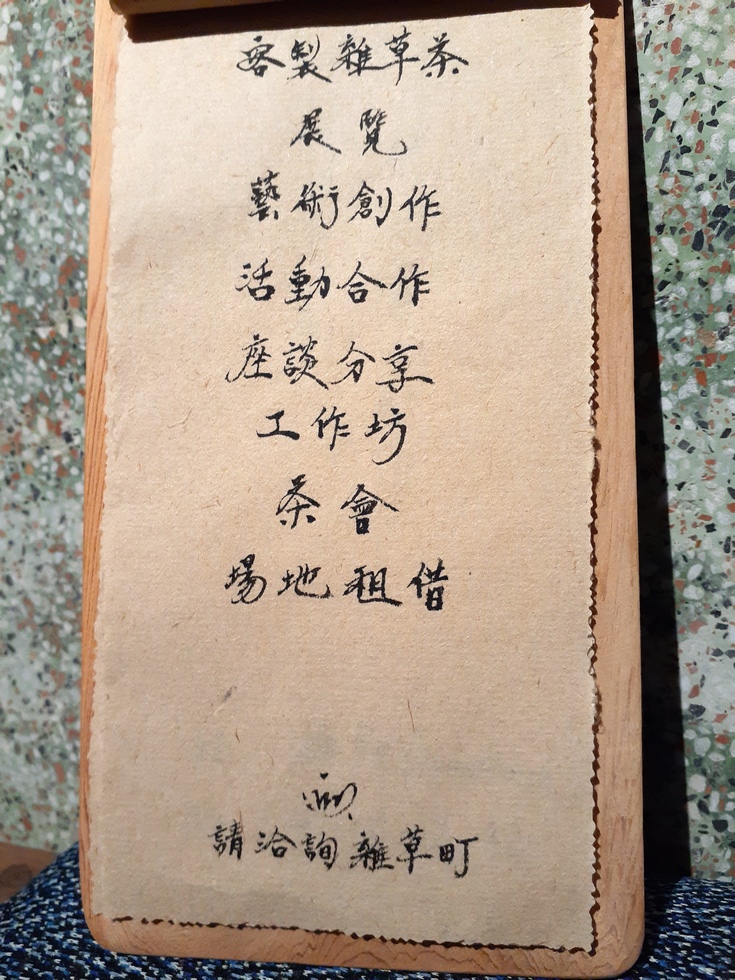 客製雜草茶
展覽
藝術創作
活動合作
座談分享
工作坊
茶會
場地租借
請洽詢雜草町